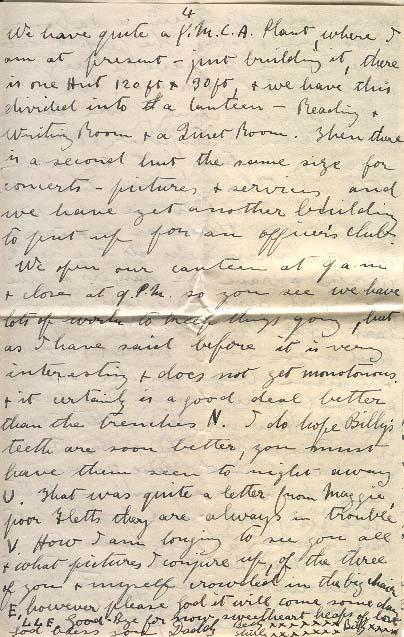 4
We have quite a Y.M.C.A. Plant, where I
am at present - just building it, there
is one Hut 120 ft x 30 ft, & we have this
divided into a Canteen - Reading &
Writing Room & a Quiet Room. Then there
is a second hut the same size for
concerts - pictures & services and
we have yet another building
to put up for an officers club.
We open our canteen at 9 a.m
& close at 9 P.M. so you see we have
lots of work to keep things going, but
as I have said before it is very
interesting & does not get monotonous.
& it certainly is a good deal better
than the trenches N. I do hope Billy's
teeth are soon better, you must
have them seen to right away
U. That was quite a letter from Maggie,
poor they are always in trouble
V. How I am longing to see you all
& what pictures I conjure up, of the three
of you & myself crowded in the big chair
E, however please god it will come some day
L4E. Good-Bye for now sweetheart heaps of love
God bless you Daddy Betty xxxxxx Billy xxxx